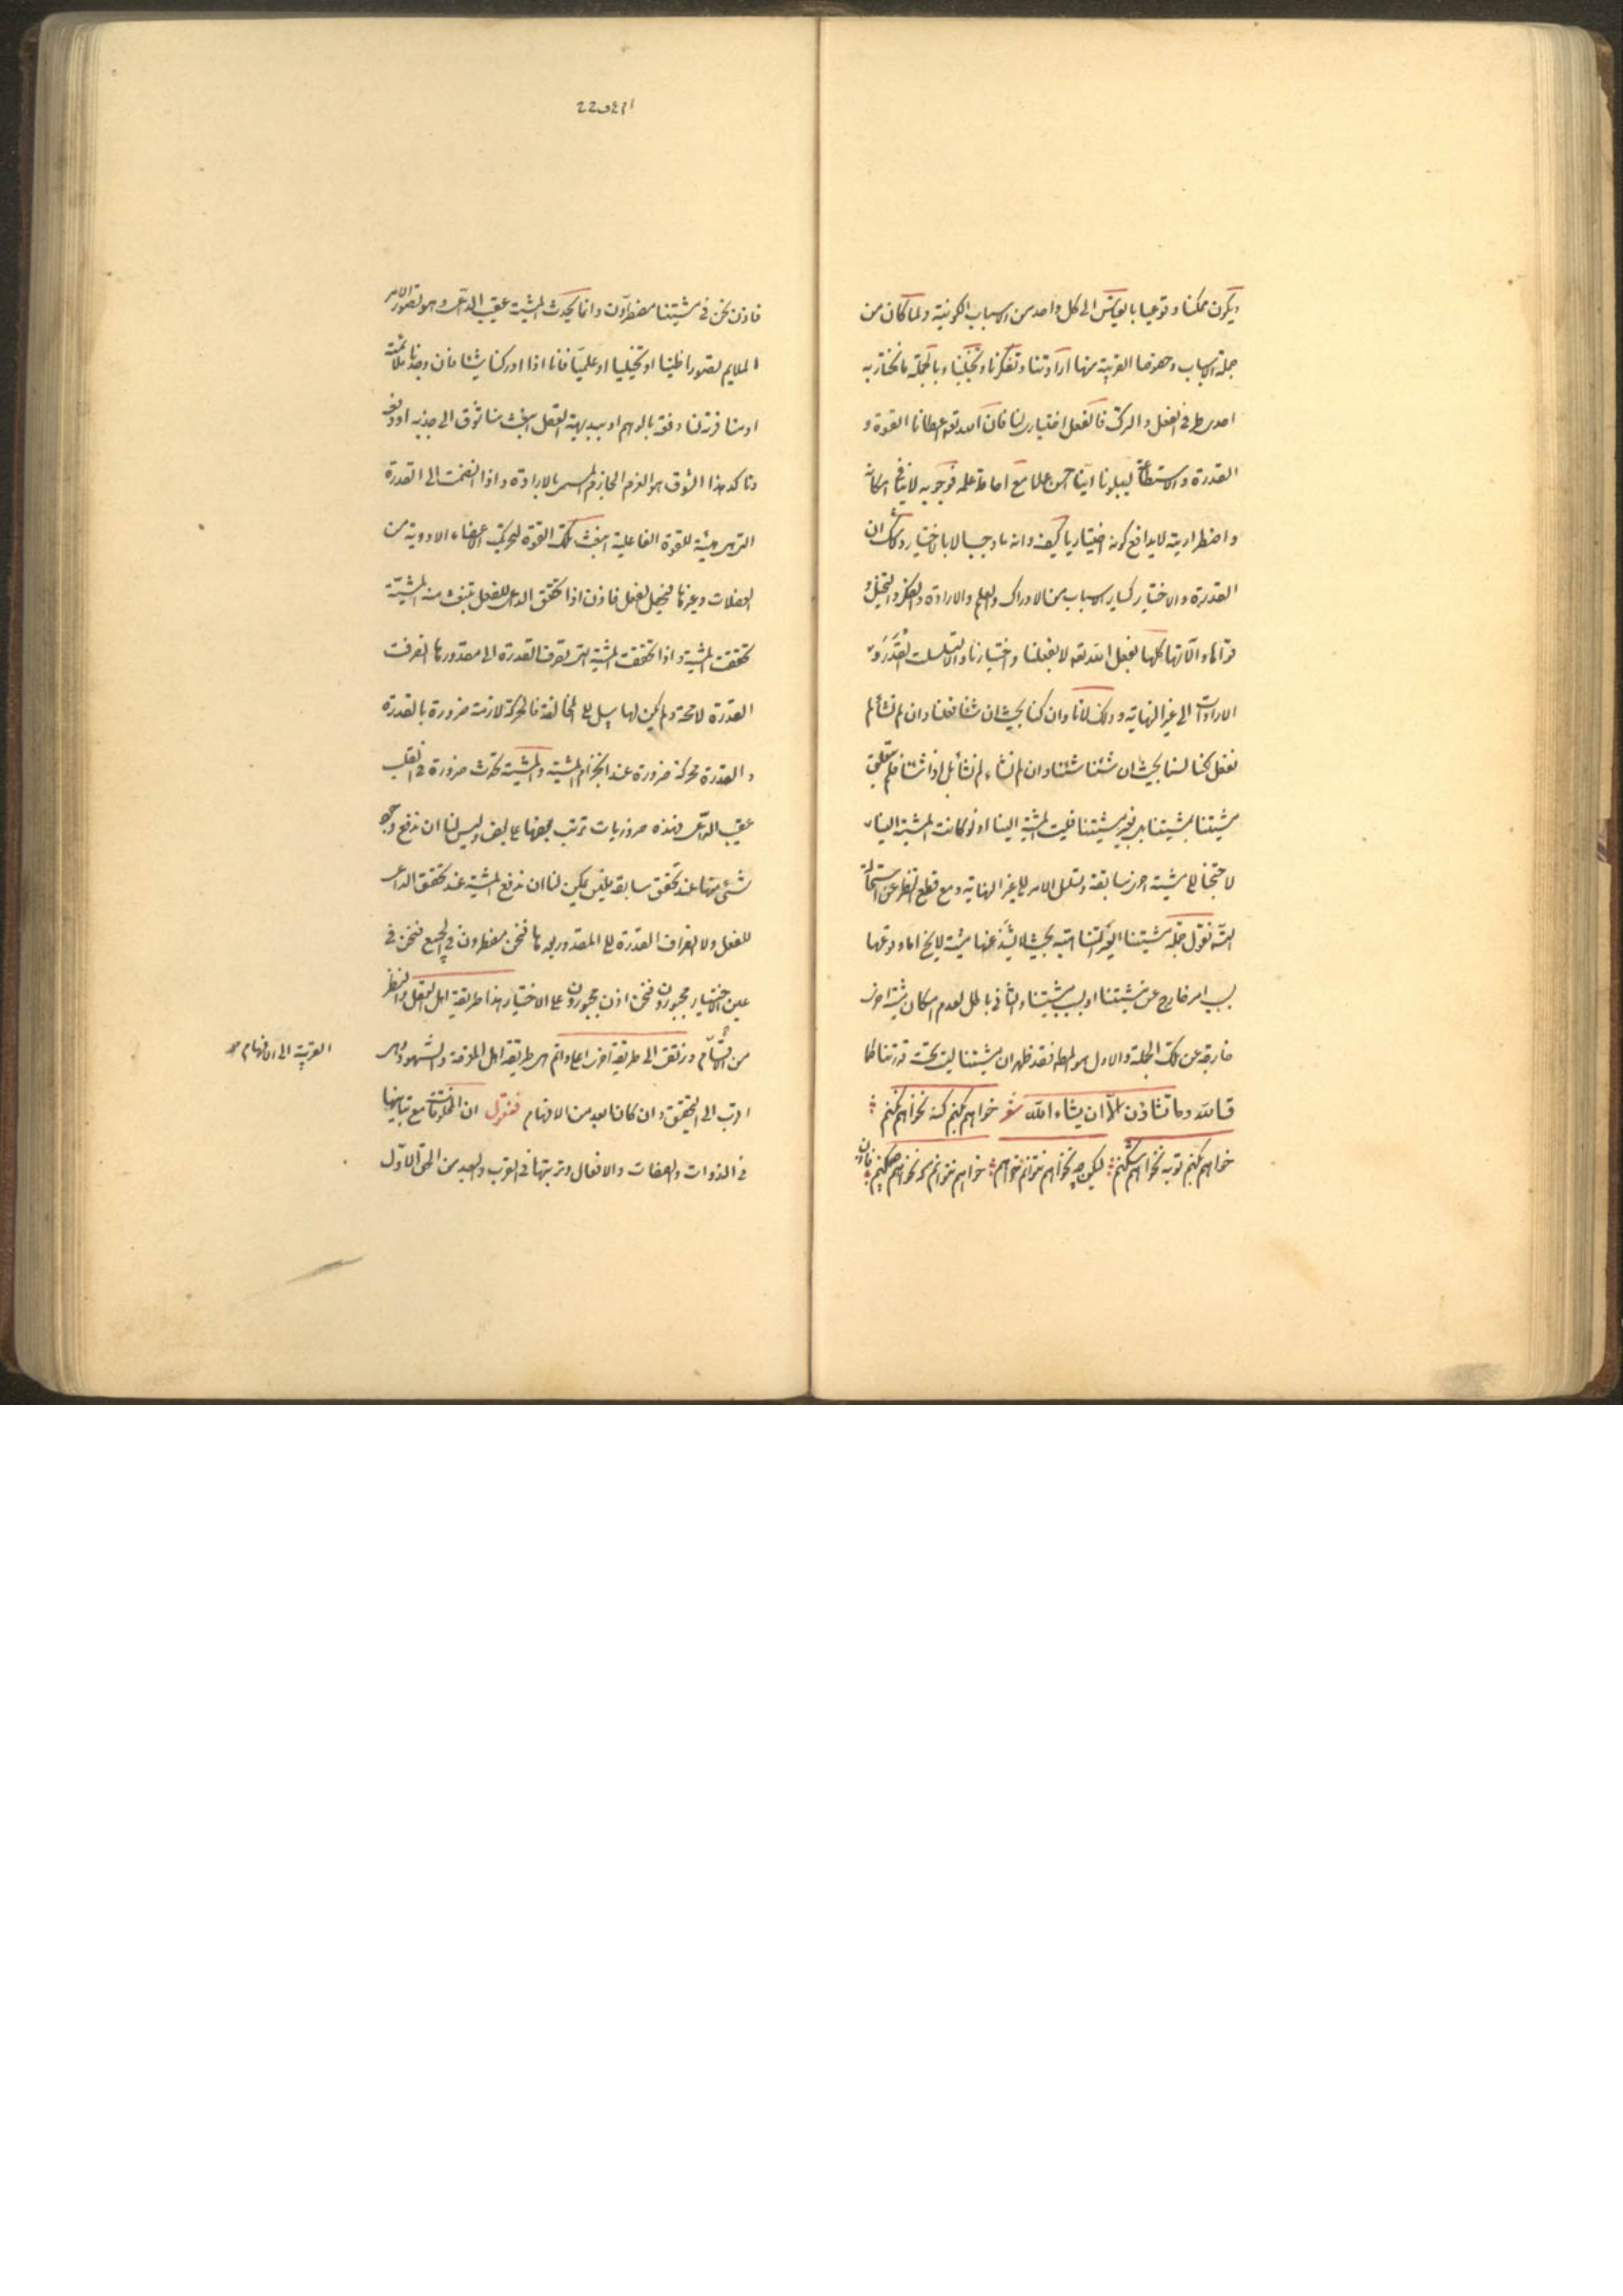 ويكون ممكنا وقوعيا بالقياس الى كل واحد من الاسباب الكونية ولما كان من
جملة الاسباب وخصوصا القريبة منها ارادتنا وتفكرنا وتخيلنا وبالجملة ما نختار به
احد طرفى الفعل والترك فالفعل اختيارى لنا فان الله تعه اعطانا القوة و
القدرة والاستطاعة ليبلونا اينا احسن عملا مع احاطة علمه فوجوبه لا ينافى امكانه
واضطراريته لا يدافع كونه اختياريا كيف وانه ما وجب الا بالاختيار ولا شك ان
القدرة والاختيار كساير الاسباب من الادراك والعلم والارادة والتفكر والتخيل و
قواها وآلاتها كلها بفعل الله تعه لا بفعلنا واختيارنا والا لتسلسلت القدر و
الارادات الى غير النهاية وذلك لانا وان كنا بحيث ان شئنا فعلنا وان لم نشأ لم
نفعل لكنا لسنا بحيث ان شئنا شئنا وان لم نشاء لم نشأ بل اذا شئنا فلم تتعلق
مشيتنا بمشيتنا بل بغير مشيتنا فليست المشية الينا اذ لو كانت المشية الينا
لاحتجنا الى مشية اخرى سابقة وتسلسل الامر الى غير النهاية ومع قطع النظر عن استحالة
التسه نقول جملة مشيتنا الغير المتناهية بحيث لا يشذ عنها مشية لا يخ اما وقوعها
بسبب امر خارج عن مشيتنا او بسبب مشيتنا والثانى باطل لعدم امكان مشية اخرى
خارجة عن تلك الجملة والاول هو المطه فقد ظهر ان مشيتنا ليست تحت قدرتنا كما
قال الله وما تشاؤن الا ان يشاء الله شعر خواهم كنم كنه نخواهم نكنم
خواهم نكنم توبه نخواهم شكنم ليكن چه نخواهم نتوانم خواهم خواهم نتوانم كه نخواهم چكنم فاذن
22 و ٤٢١
فاذن نحن فى مشيتنا مضطرون وانما تحدث المشية عقيب الداعى وهو تصور الامر
الملايم تصورا ظنيا او تخيليا او علميا فانا اذا ادركنا شيئا فان وجدنا ملائمته
او منافرته لنا دفعة بالوهم او ببديهة العقل انبعث منا شوق الى جذبه او دفعه
وتاكد هذا الشوق هو العزم الجازم المسمى بالارادة واذا انضمت الى القدرة
التى هى هيئة للقوة الفاعلية انبعثت تلك القوة لتحريك الاعضاء الادوية من
العضلات وغيرها فيحصل الفعل فاذن اذا تحقق الداعى للفعل تنبعث منه المشية
تحققت المشية واذا تحققت المشية التى تصرف القدرة الى مقدورها انصرفت
القدرة لا محة ولم يكن لها سبيل الى المخالفة فالحركة لازمة ضرورة بالقدرة
والقدرة محركة ضرورة عند انجزام المشية والمشية تحدث ضرورة فى القلب
عقيب الداعى فهذه ضروريات ترتب بعضها على بعض وليس لنا ان ندفع وجود
شئ منها عند تحقق سابقه فليس يمكن لنا ان ندفع المشية عند تحقق الداعى
للفعل ولا انصراف القدرة الى المقدور بعدها فنحن مضطرون فى الجميع فنحن فى
عين الاختيار مجبورون فنحن اذن مجبورون على الاختيار هذا طريقة اهل العقل والنظر
من الكلام ونرتقى الى طريقة اخرى اعلى واتم هى طريقة اهل المعرفة والشهود وهى
اقرب الى التحقيق وان كان ابعد من الافهام فنقول ان المخلوقات مع تباينها
فى الذوات والصفات والافعال وترتبها فى القرب والبعد من الحق الاول
القريبة الى الافهام